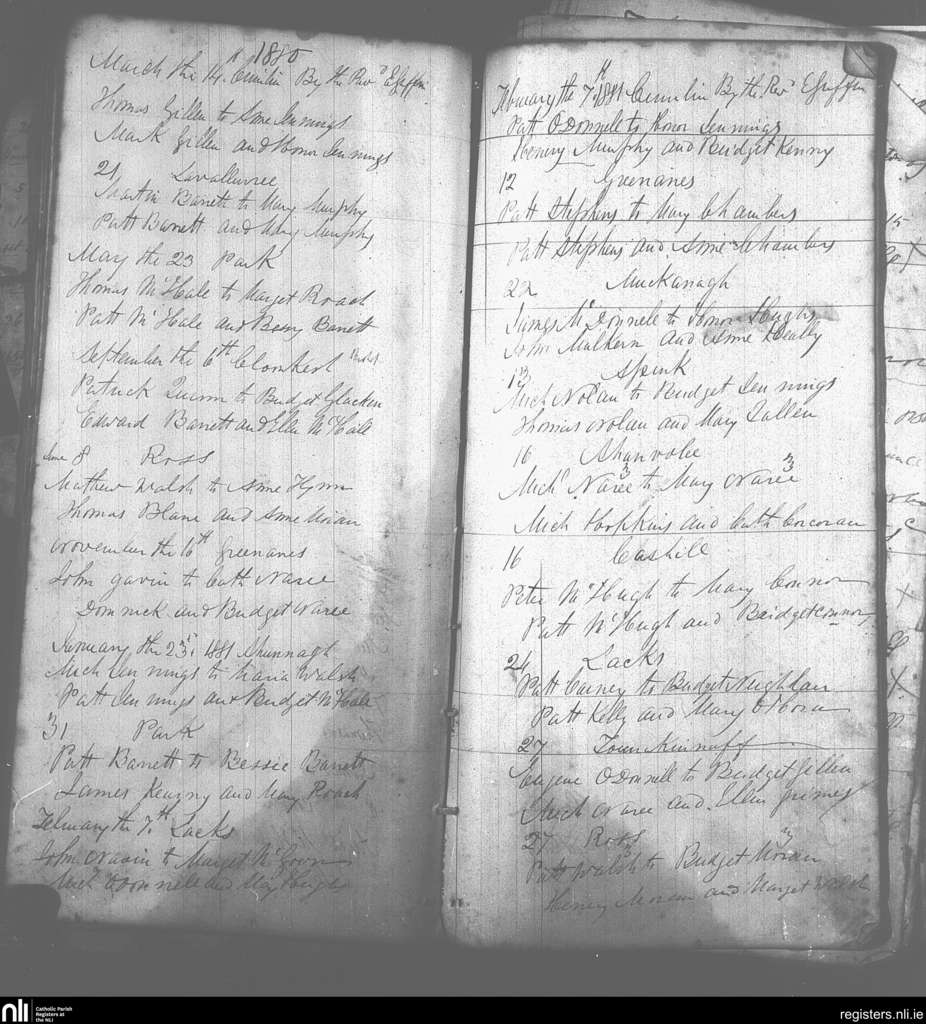 1880
March the 14th Cunilin By the Revd E Griffin
Thomas Gillen to Anne Jennings
Mark Gillen and Honor Jennings
21 Lavallinree
Martin Barrett to Mary Murphy
Patt Barrett and Mary Murphy
May the 23 Park
Thomas McHale to Marget Roach
Patt McHale and Bessy Barrett
September the 6th Cloonkesh
Patrick Quinn to Budget Glacken
Edward Barrett and Ellen McHale
June 8 Ross
Mathew Walsh to Anne Flynn
Thomas Blane and Anne Moran
November the 16th Greenanes
John gavin to Cath Naree
Dominick and Budget Naree
January the 23rd 1881 Shannagh
Mich Jennings to Maria Walsh
Patt Jennings and Budget McHale
31 Park
Patt Barrett to Bessie Barrett
James Kearny and Mary Roach
Febuary the 7th Lacks
John Navin to Marget McGovrn
Mich O Donnell and Mary Hughs
Febuary the 7th 1881 Cunnilin By the Revd E Griffin
Patt O Donnell to Honor Jennings
Henery Murphy and Bridget Kenny
12 Greenanes
Patt Stephens to Mary Chambers
Patt Stephens and Anne Chambers
22 Muckanagh
James McDonnell to Honor Hughs
John Mulkern and Anne Heally
13 Spink
Mich Nolan to Bridget Jennings
Thomas Nolan and Mary Gallen
16 Shanvolie
Mich Naree to Mary Naree
Mich Hopkins and Cath Corcoran
16 Cashill
Peter McHugh to Mary Connor
Patt McHugh and Bridget Connor
24 Lacks
Patt Carney to Budget Neighlan
Patt Kelly and Mary O Hora
27 Townkinnaff
Eugene O Donnell to Budget Gillen
Mich Naree and Ellen Grimes
27 Ross
Patt Walsh to Budget Moran
Henery Moran and Marget Walsh
nli
Catholic Parish
Registers at
the NLI
registers.nli.ie